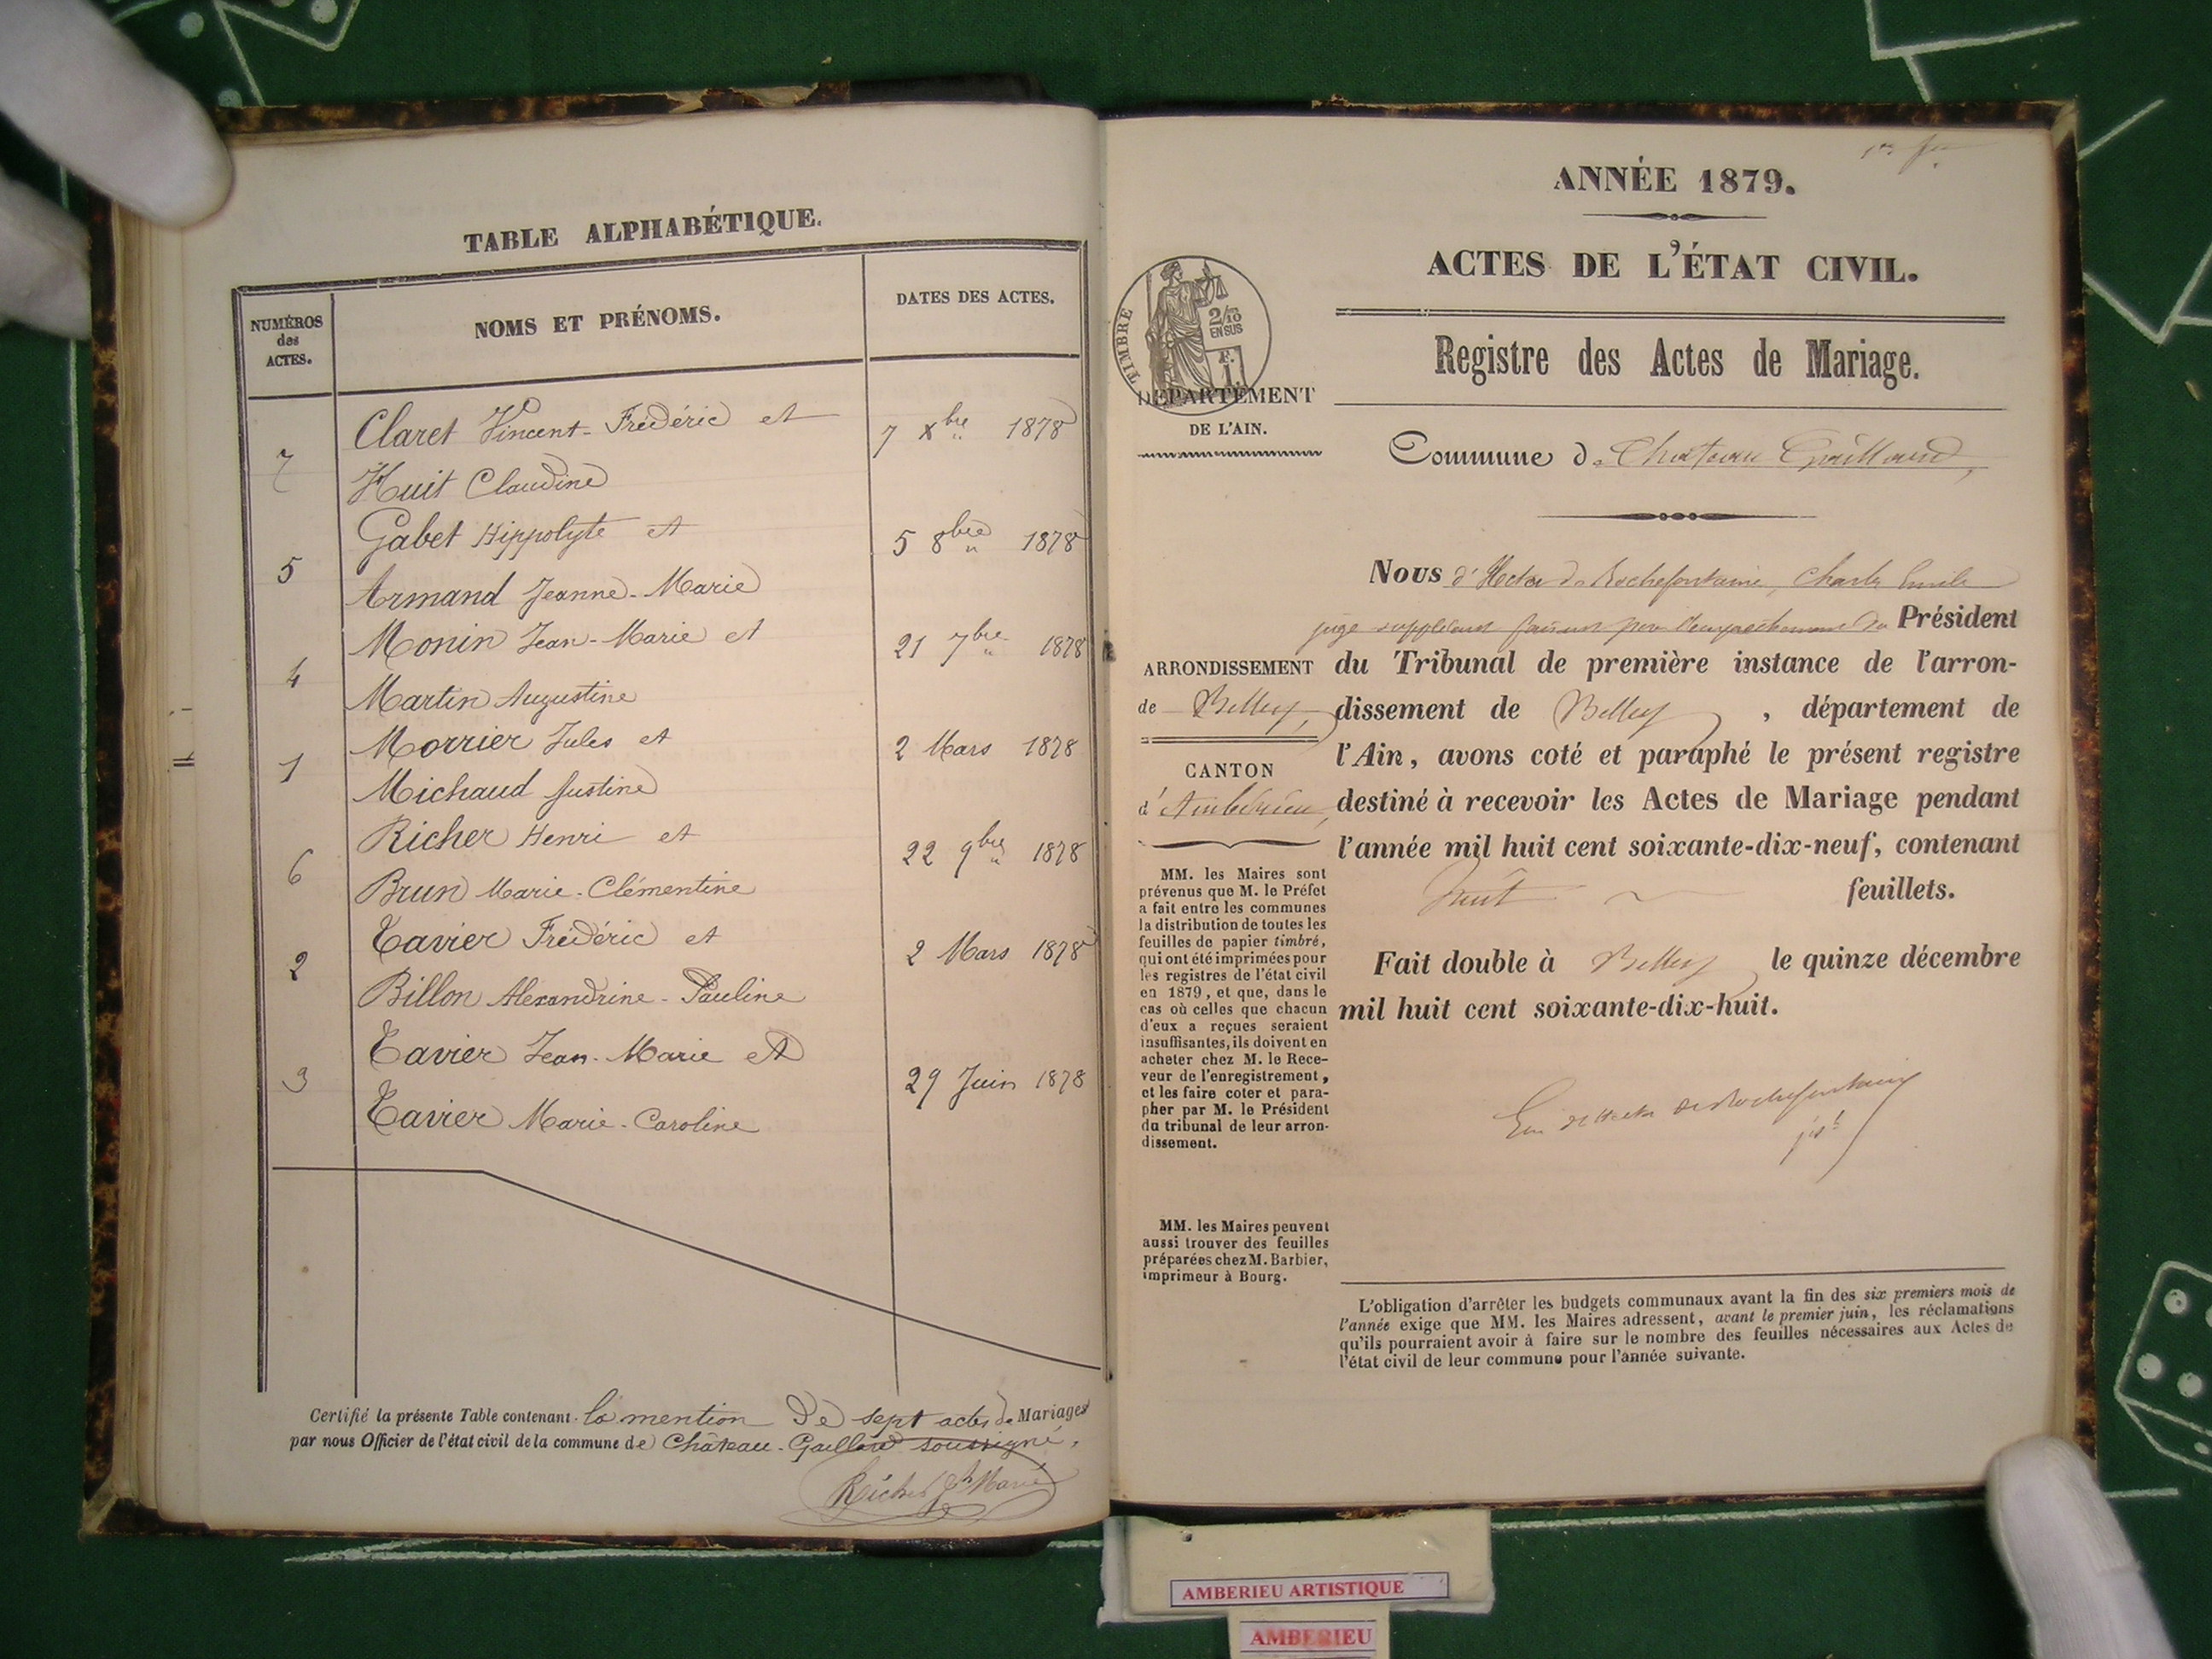 TABLE ALPHABÉTIQUE.
NUMÉROS
des
ACTES.
NOMS ET PRÉNOMS.
DATES DES ACTES.
7
Claret Vincent-Frédéric et
Huit Claudine
7 Xbre 1878
5
Gabet Hippolyte et
Armand Jeanne-Marie
5 8bre 1878
4
Monin Jean-Marie et
Martin Augustine
21 7bre 1878
1
Morrier Jules et
Michaud Justine
2 Mars 1878
6
Richer Henri et
Brun Marie-Clémentine
22 9bre 1878
2
Tavier Frédéric et
Billon Alexandrine-Pauline
2 Mars 1878
3
Tavier Jean-Marie et
Tavier Marie-Caroline
29 Juin 1878
Certifié la présente Table contenant la mention de sept actes de Mariages
par nous Officier de l'état civil de la commune de Château-Gaillard soussigné.
Richer
ANNÉE 1879.
ACTES DE L'ÉTAT CIVIL.
Registre des Actes de Mariage.
TIMBRE
2/10
EN SUS
F.
1
DÉPARTEMENT
DE L'AIN.
Commune de Chateau Gaillard,
Nous d'Hector de Rochefontaine, Charles Emile
juge suppléant faisant pour l'empêchement du Président
du Tribunal de première instance de l'arron-
dissement de Belley, département de
l'Ain, avons coté et paraphé le présent registre
destiné à recevoir les Actes de Mariage pendant
l'année mil huit cent soixante-dix-neuf, contenant
huit feuillets.
Fait double à Belley le quinze décembre
mil huit cent soixante-dix-huit.
Em d'Hector de Rochefontaine
ARRONDISSEMENT
de Belley,
CANTON
d'Ambérieu,
MM. les Maires sont
prévenus que M. le Préfet
a fait entre les communes
la distribution de toutes les
feuilles de papier timbré,
qui ont été imprimées pour
les registres de l'état civil
en 1879, et que, dans le
cas où celles que chacun
d'eux a reçues seraient
insuffisantes, ils doivent en
acheter chez M. le Rece-
veur de l'enregistrement,
et les faire coter et para-
pher par M. le Président
du tribunal de leur arron-
dissement.
MM. les Maires peuvent
aussi trouver des feuilles
préparées chez M. Barbier,
imprimeur à Bourg.
L'obligation d'arrêter les budgets communaux avant la fin des six premiers mois de
l'année exige que MM. les Maires adressent, avant le premier juin, les réclamations
qu'ils pourraient avoir à faire sur le nombre des feuilles nécessaires aux Actes de
l'état civil de leur commune pour l'année suivante.
AMBERIEU ARTISTIQUE
AMBERIEU